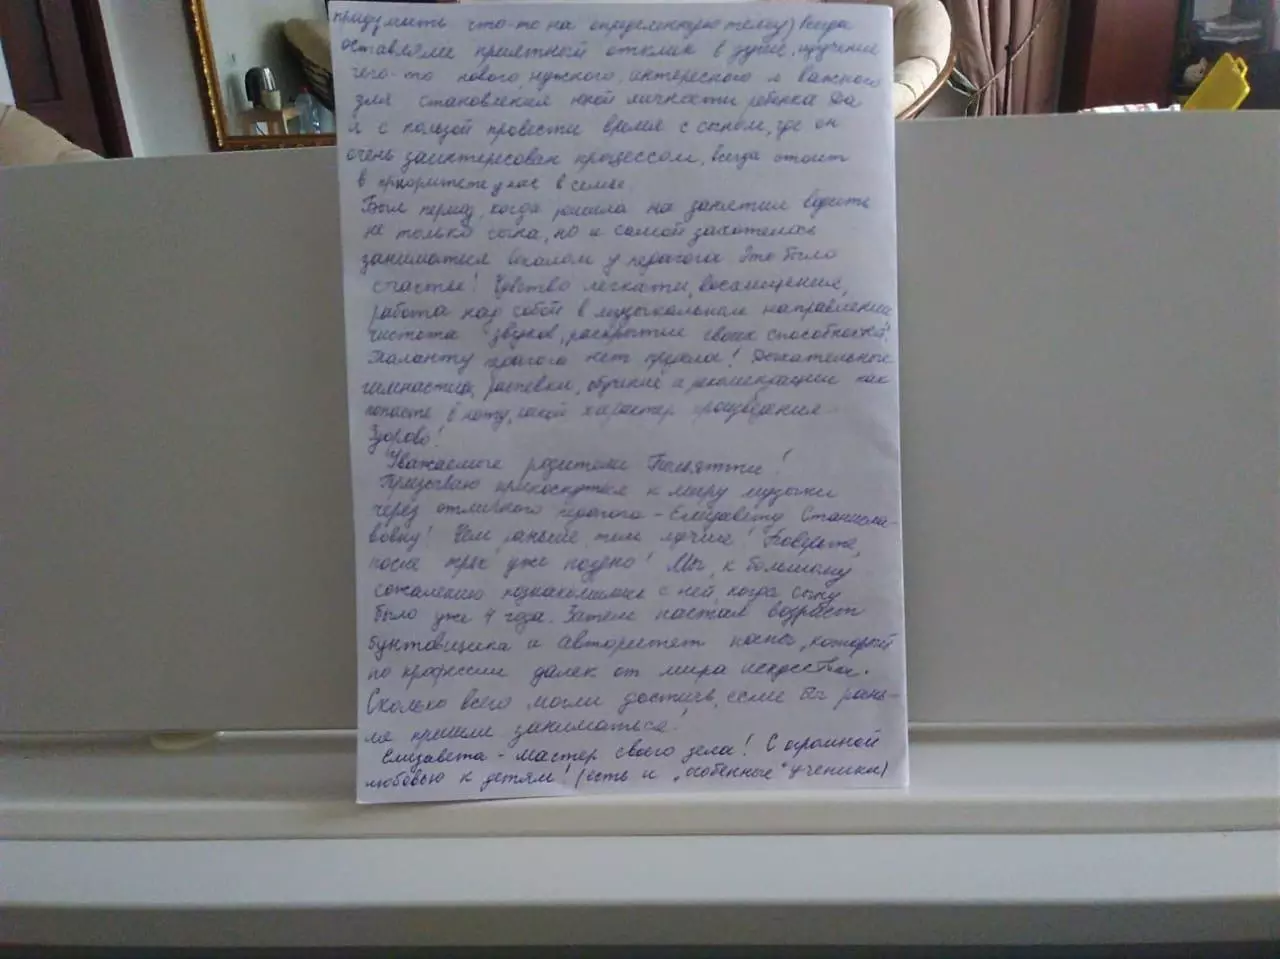 придумать что-то на определенную тему) всегда
оставляли приятный отклик в душе, изучение
чего-то нового, нужного, интересного и важного
для становления юной личности ребенка. Да
и с пользой провести время с сыном, где он
очень заинтересован процессом, всегда стоит
в приоритете у нас в семье.
Был период, когда решила на занятия водить
не только сына, но и самой захотелось
заниматься вокалом у педагога. Это было
счастье! Чувство легкости, восхищения,
работа над собой в музыкальном направлении,
чистота звуков, раскрытие своих способностей.
Таланту педагога нет предела! Дыхательные
гимнастики, распевки, обучение и рекомендации как
попасть в ноту, какой характер произведения.
Здорово!
Уважаемые родители Тольятти!
Призываю прикоснуться к миру музыки
через отличного педагога - Елизавету Станисла-
вовну! Чем раньше, тем лучше! Поверьте,
после трех уже поздно! Мы, к большому
сожалению познакомились с ней, когда сыну
было уже 4 года. Затем настал возраст
бунтовщика и авторитет папы, который
по профессии далек от мира искусства.
Сколько всего могли достичь, если бы рань-
ше пришли заниматься!
Елизавета - мастер своего дела! С огромной
любовью к детям! (есть и "особенные" ученики)